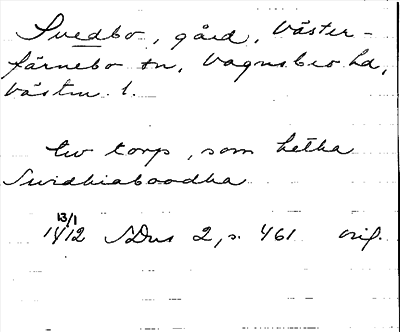 Svedbo, gård, Väster-
färnebo sn, Vagnsbro hd,
Västm. l.
tw torp, som hetha
Swidhiaboodha
13/1
1412 SDns 2, s. 461 orig.